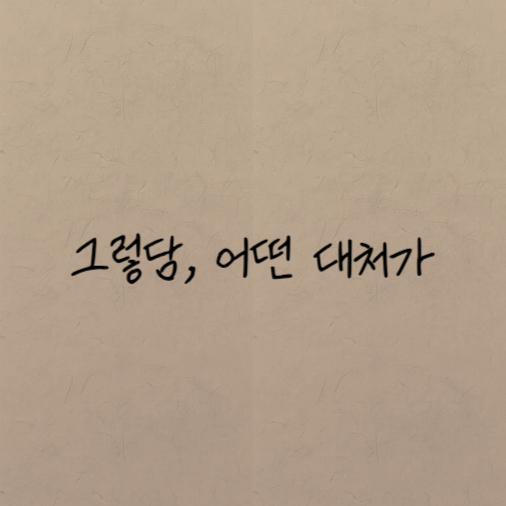 그렇담, 어떤 대처가